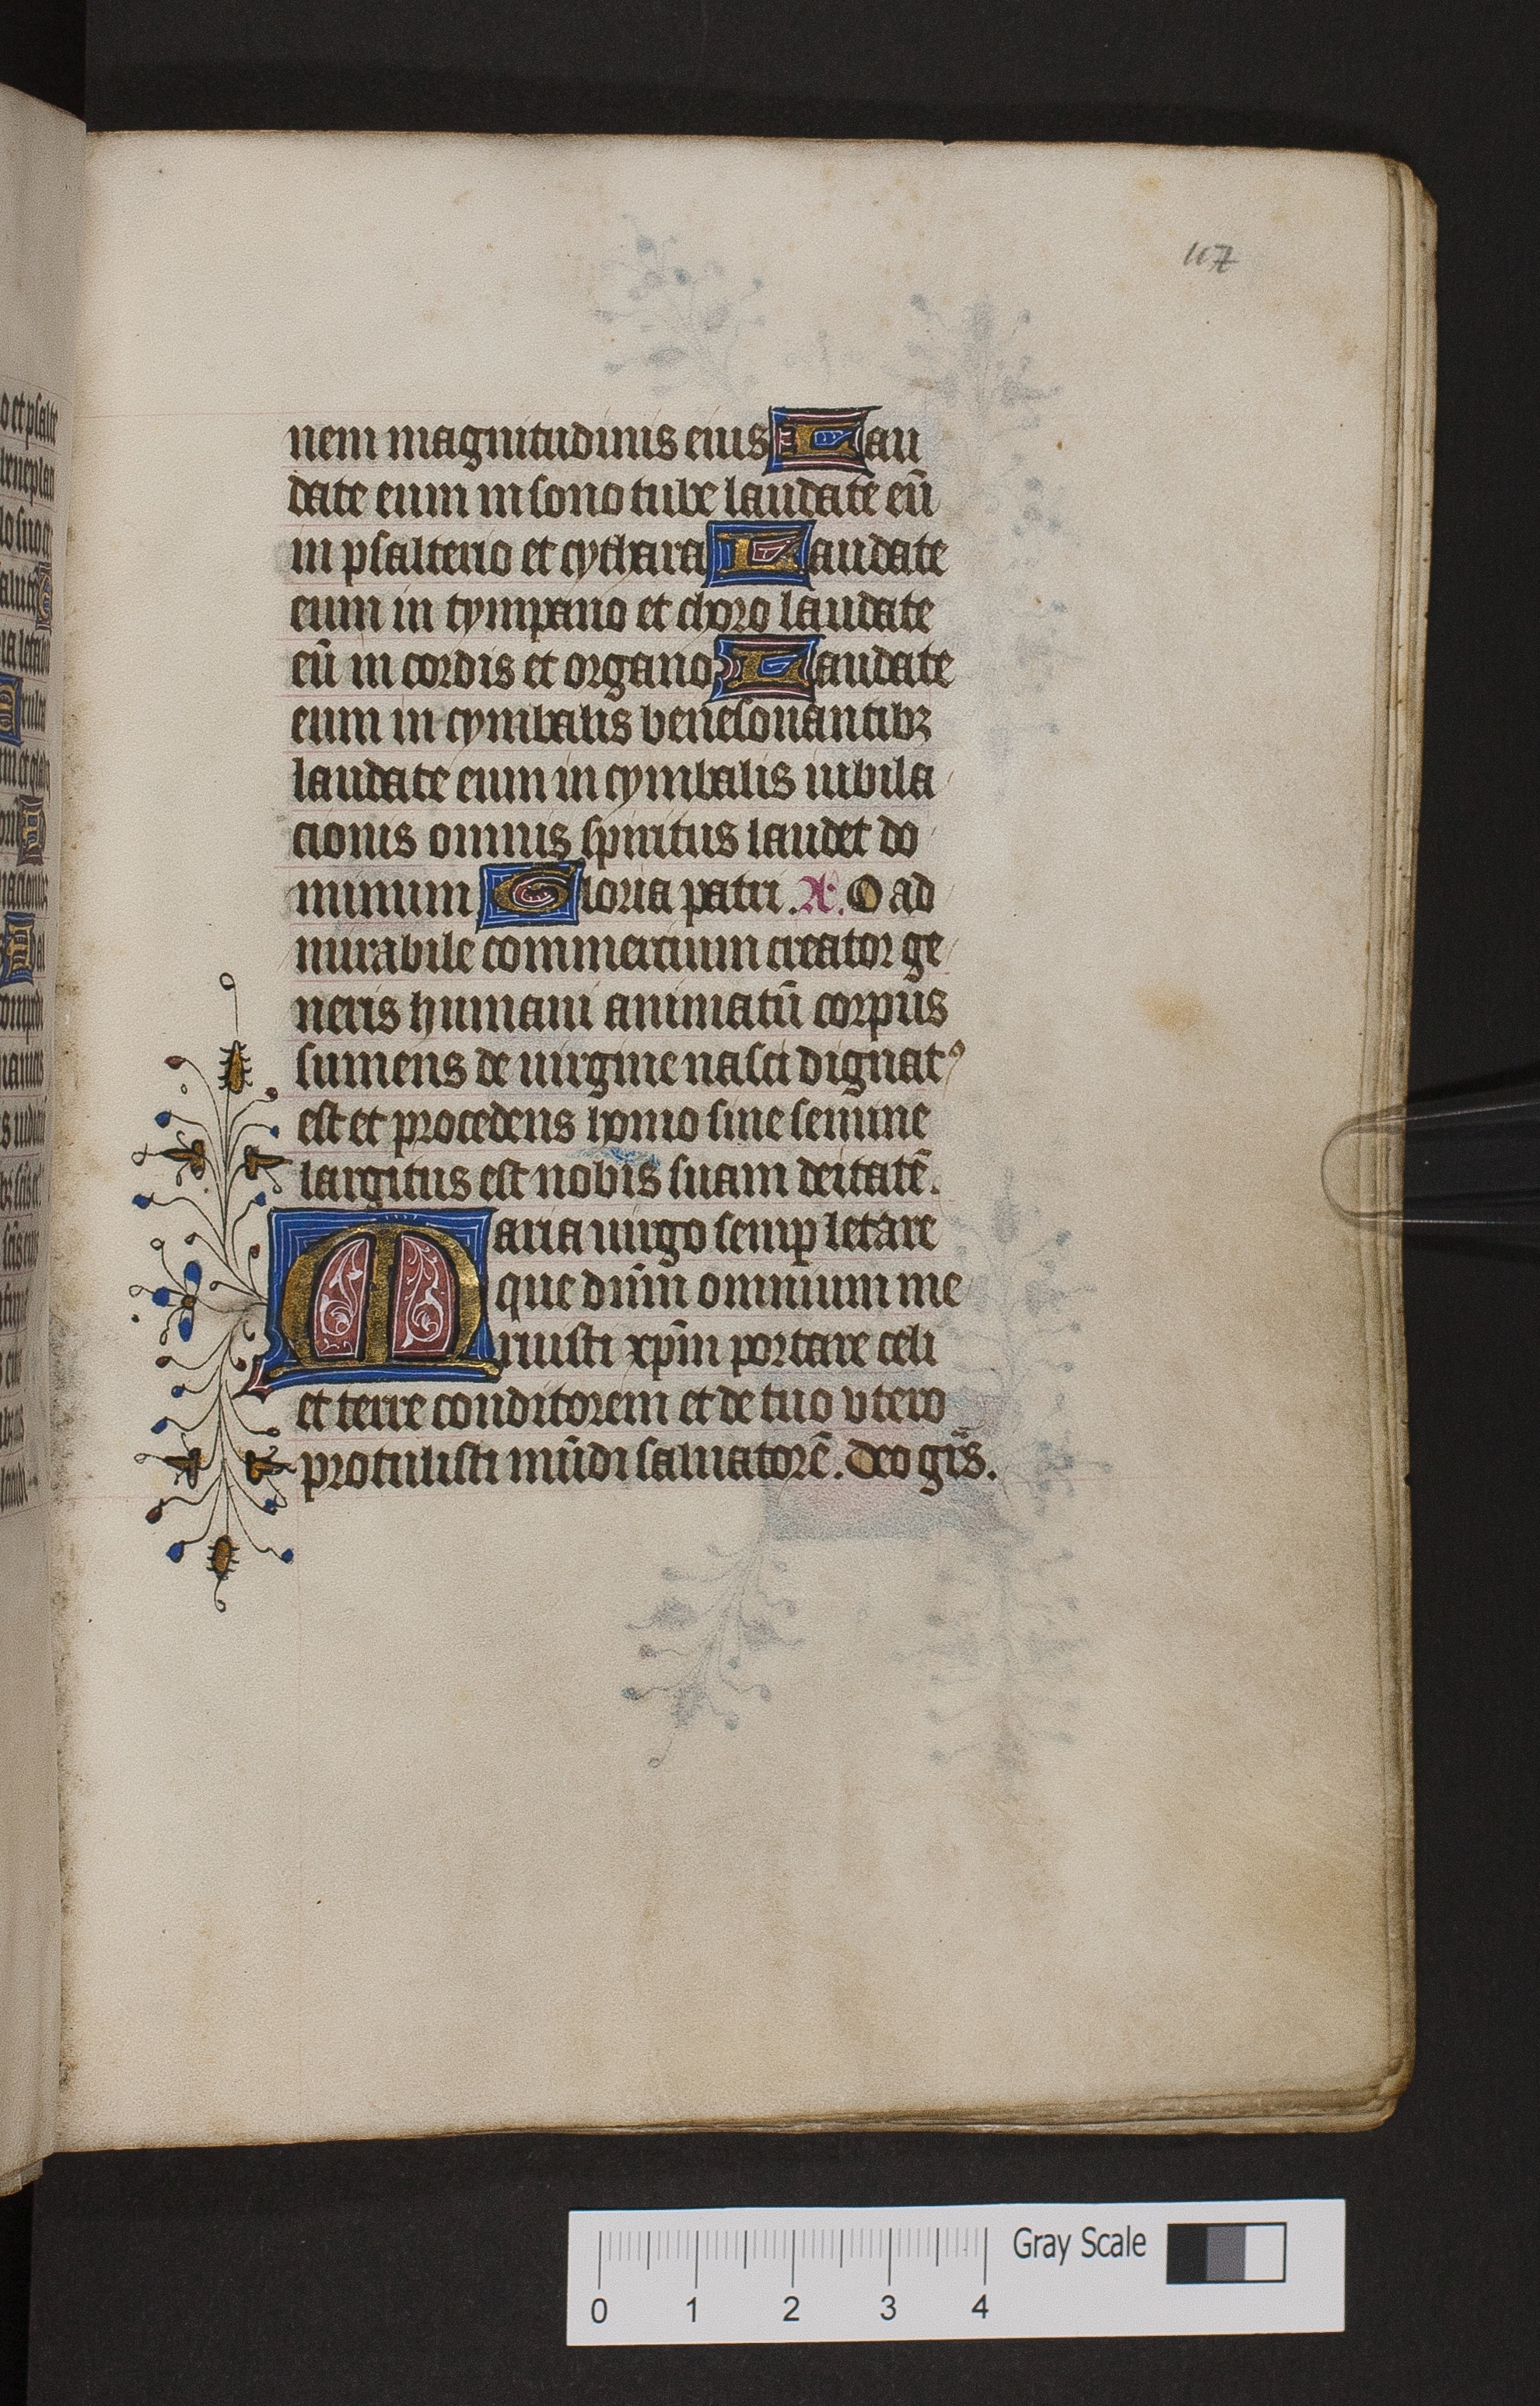 117
nem magnitudinis eius Lau
date eum in sono tube laudate eū
in psalterio et cythara Laudate
eum in tympano et choro laudate
eū in cordis et organo Laudate
eum in cymbalis benesonantibꝫ
laudate eum in cymbalis iubila
cionis omnis spiritus laudet do
minum Gloria patri. A. O ad
mirabile commercium creator ge
neris humani animatū corpus
sumens de uirgine nasci dignatꝰ
est et procedens homo sine semine
largitus est nobis suam deitatē.
Maria uirgo semp letare
que dūm omnium me
ruisti xp̄m portare celi
et terre conditorem et de tuo vtero
protulisti mūdi saluatorē. Deo gr̄s.
Gray Scale
0 1 2 3 4